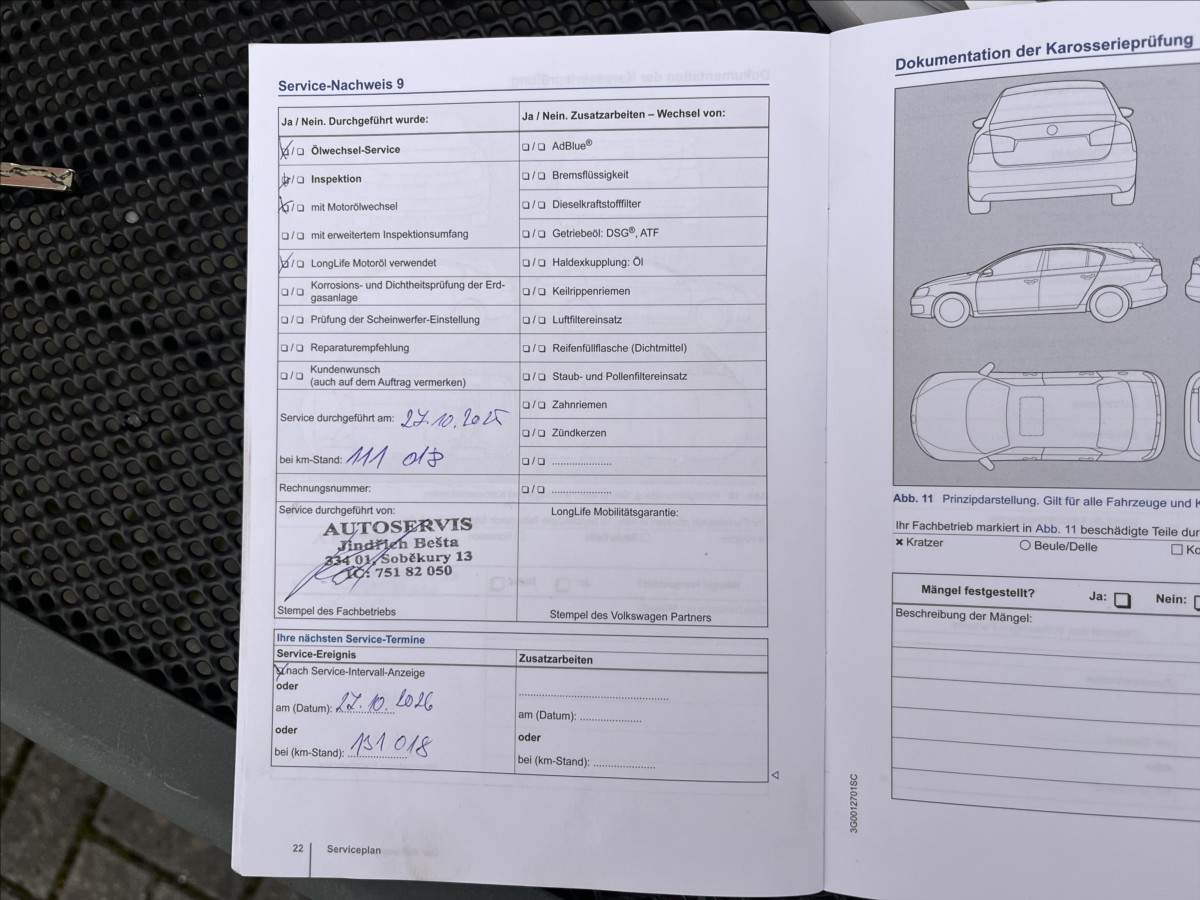 Service-Nachweis 9
Ja / Nein. Durchgeführt wurde:
☒/❏ Ölwechsel-Service
☒/❏ Inspektion
☒/❏ mit Motorölwechsel
❏/❏ mit erweitertem Inspektionsumfang
☒/❏ LongLife Motoröl verwendet
❏/❏ Korrosions- und Dichtheitsprüfung der Erd-
gasanlage
❏/❏ Prüfung der Scheinwerfer-Einstellung
❏/❏ Reparaturempfehlung
❏/❏ Kundenwunsch
(auch auf dem Auftrag vermerken)
Service durchgeführt am: 27.10.2025
bei km-Stand: 111 018
Rechnungsnummer:
Service durchgeführt von:
AUTOSERVIS
Jindřich Bešta
334 01, Soběkury 13
IČ: 751 82 050
Stempel des Fachbetriebs
Ja / Nein. Zusatzarbeiten – Wechsel von:
❏/❏ AdBlue®
❏/❏ Bremsflüssigkeit
❏/❏ Dieselkraftstofffilter
❏/❏ Getriebeöl: DSG®, ATF
❏/❏ Haldexkupplung: Öl
❏/❏ Keilrippenriemen
❏/❏ Luftfiltereinsatz
❏/❏ Reifenfüllflasche (Dichtmittel)
❏/❏ Staub- und Pollenfiltereinsatz
❏/❏ Zahnriemen
❏/❏ Zündkerzen
❏/❏ .....................
❏/❏ .....................
LongLife Mobilitätsgarantie:
Stempel des Volkswagen Partners
Ihre nächsten Service-Termine
Service-Ereignis
☒ nach Service-Intervall-Anzeige
oder
am (Datum): 27.10.2026
oder
bei (km-Stand): 131 018
Zusatzarbeiten
.....................
am (Datum): .....................
oder
bei (km-Stand): .....................
22 Serviceplan
Dokumentation der Karosserieprüfung
Abb. 11 Prinzipdarstellung. Gilt für alle Fahrzeuge und
Ihr Fachbetrieb markiert in Abb. 11 beschädigte Teile
✖ Kratzer ○ Beule/Delle ☐
Mängel festgestellt? Ja: ❏ Nein: ❏
Beschreibung der Mängel:
3G0012701SC